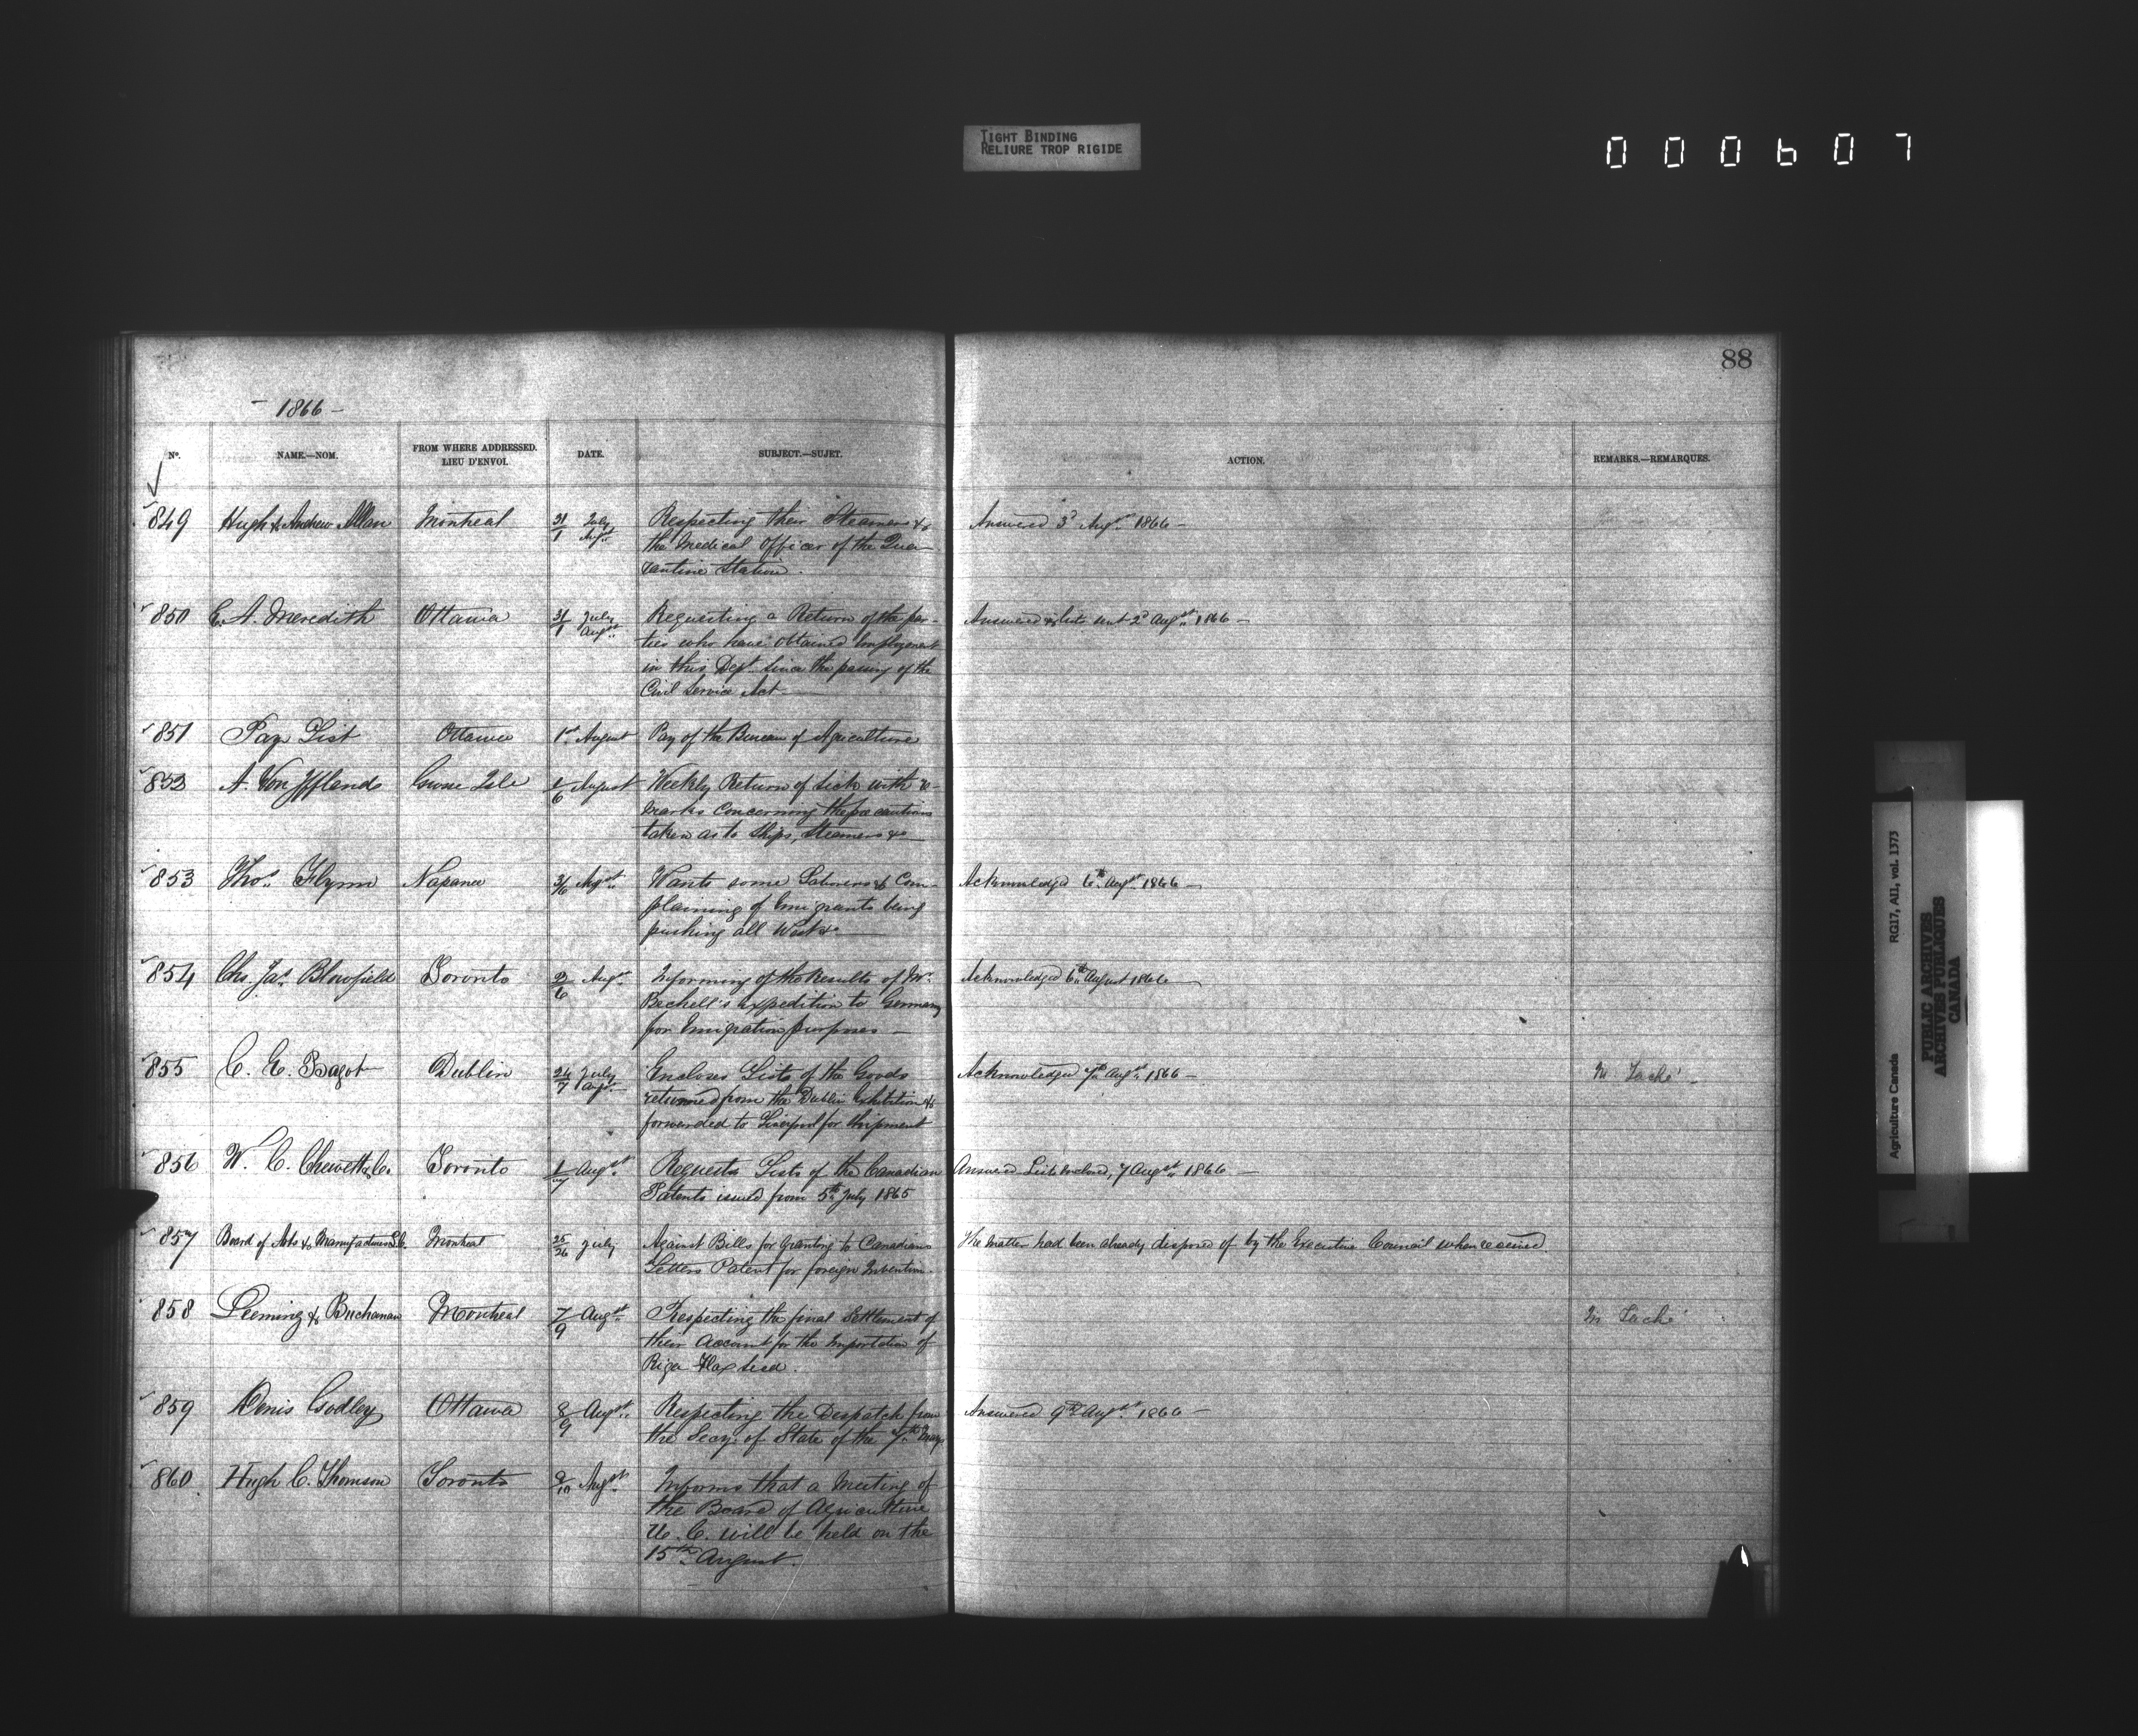 TIGHT BINDING
RELIURE TROP RIGIDE
000607
88
- 1866 -
No. NAME.—NOM. FROM WHERE ADDRESSED. LIEU D'ENVOI. DATE. SUBJECT.—SUJET. ACTION. REMARKS.—REMARQUES.
849 Hugh & Andrew Allan Montreal 31/1 July Augst Respecting their Steamers & Answered 3d Augst 1866 -
the Medical Officer of the Qua-
rantine Station.
850 E. A. Meredith Ottawa 31/1 July Augst Requesting a Return of the par- Answered & lists sent 2d Augst 1866 -
ties who have obtained Employment
in this Dept. since the passing of the
Civil Service Act
851 Pay List Ottawa 1st August Pay of the Bureau of Agriculture
852 A. Von Iffland Grosse Isle /6 August Weekly Return of sick with re-
marks concerning the precautions
taken as to Ships, Steamers &c
853 Thos. Flynn Napanee 3/6 Augst Wants some Laborers & Com- Acknowledged 6th Augst 1866 -
plaining of Emigrants being
pushing all West &c
854 Chs. Jas. Blomfield Toronto 2/6 Augst Informing of the Results of Mr. Acknowledged 6th August 1866
expedition to Germany
for Emigration purposes -
855 C. E. Bagot Dublin 24/7 July Augst Encloses Lists of the Goods Acknowledged 7th Augst 1866 - M Taché -
returned from the Dublin Exhibition &
forwarded to Liverpool for shipment
856 W. C. Chewett & Co. Toronto 1/7 Augst Requests Lists of the Canadian Answered - Lists enclosed, 7 Augst 1866 -
Patents issued from 5th July 1865
857 Board of Arts & Manufactures L.C. Montreal 25/26 July Against Bills for Granting to Canadians The matter had been already disposed of by the Executive Council when received.
Letters Patent for foreign Invention.
858 Leeming & Buchanan Montreal 7/9 Augst Respecting the final Settlement of M Taché
their Account for the Importation of
Riga Flax seed.
859 Denis Godley Ottawa 8/9 Augst Respecting the Despatch from Answered 9th Augst 1866 -
the Secy. of State of the 7th May
860 Hugh C. Thomson Toronto 9/10 Augst Informs that a Meeting of
the Board of Agriculture
U. C. will be held on the
15th August.
Agriculture Canada RG17, AII, vol. 1373
PUBLIC ARCHIVES
ARCHIVES PUBLIQUES
CANADA